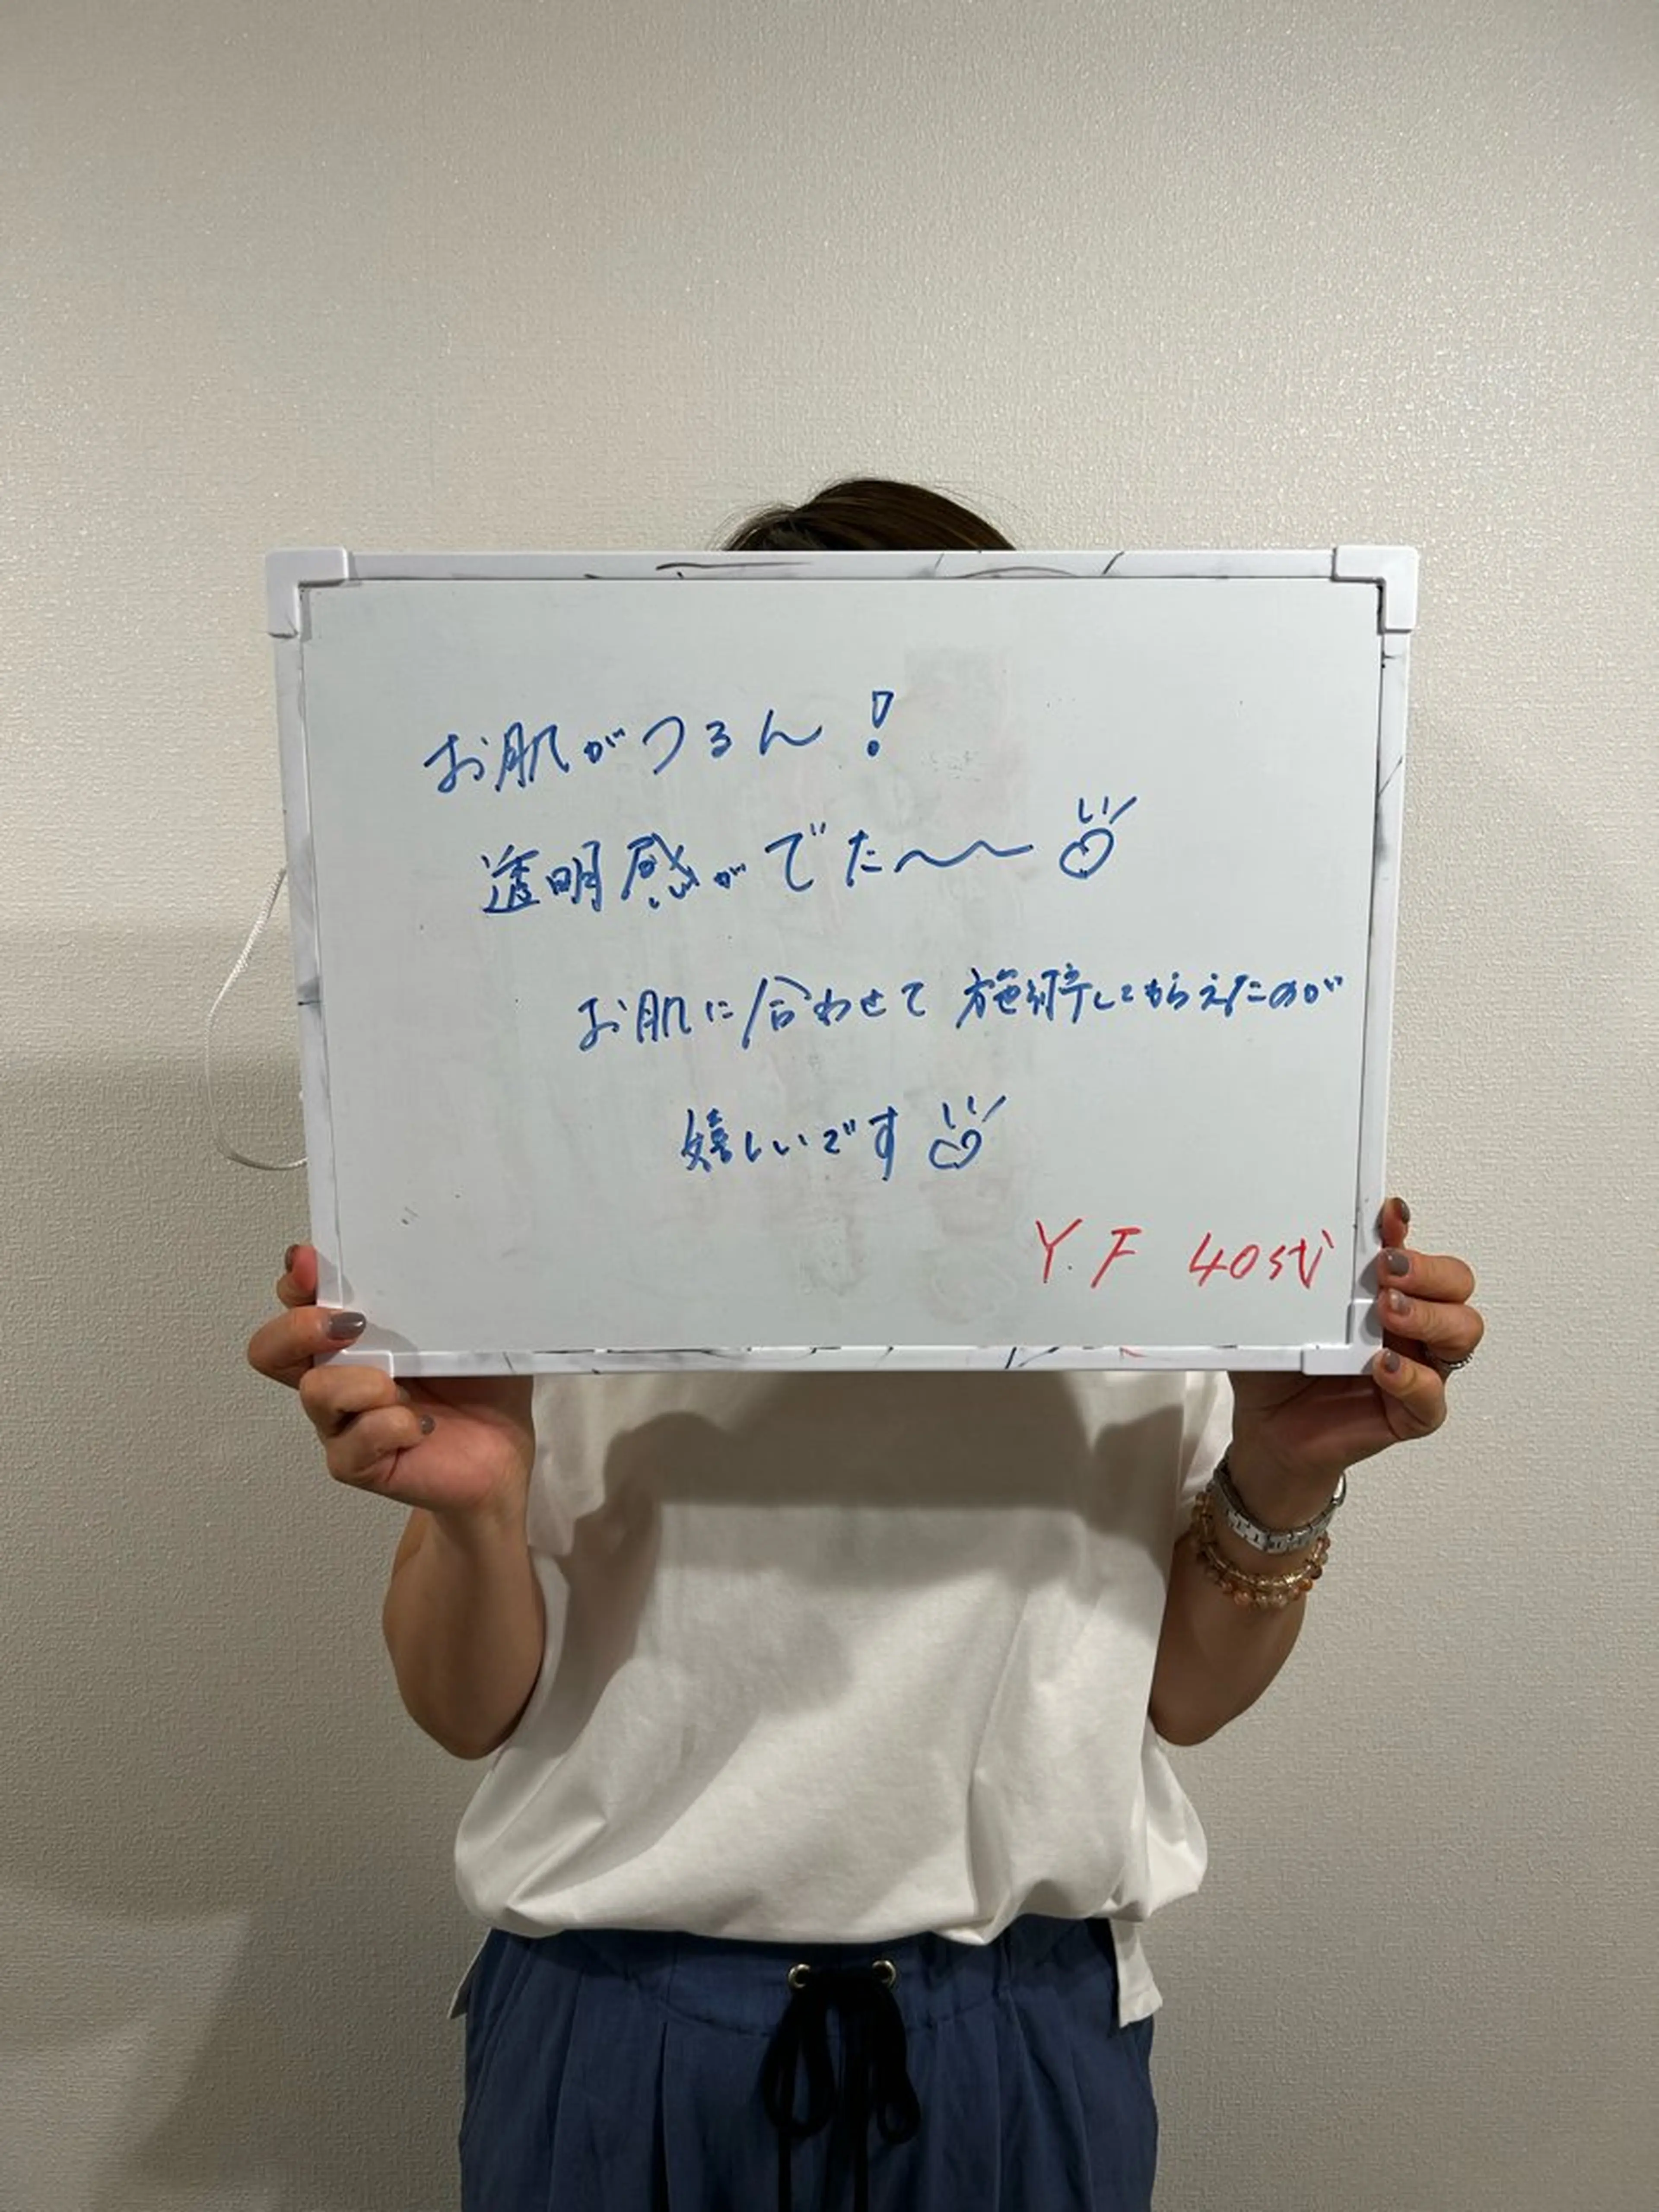 お肌がつるん!
透明感がでた〜〜
お肌に合わせて施術してもらえたのが
嬉しいです
Y.F 40代